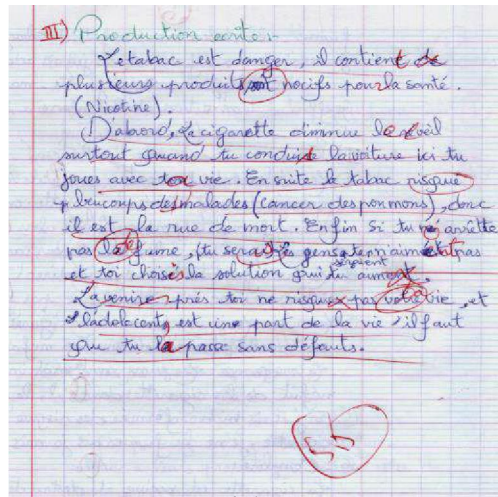 III) Production ecrite :
Le tabac est danger, il contient de
plusieurs produits nocifs pour la santé.
(Nicotine).
D'abord, La cigarette diminue le reveil
surtout quand tu conduise la voiture ici tu
joues avec ta vie. En suite le tabac risque
plucoups des malades (cancer des pormons), donc
il est la rue de mort. Enfin si tu n'arrête
pas la fume, (tu sera gens t'enn'aiment pas
et toi choisis la solution qui tu aiment.
L'avenire près toi ne risque pas vie, et
l'adolecents est une part de la vie, il faut
que tu la passe sans défauts.